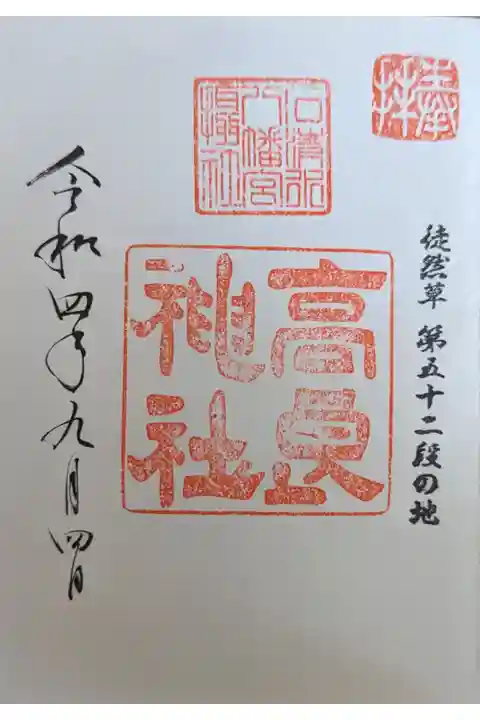 奉拝
徒然草 第五十二段の地
石清水
八幡宮
摂社
高良
神社
令和四年九月四日